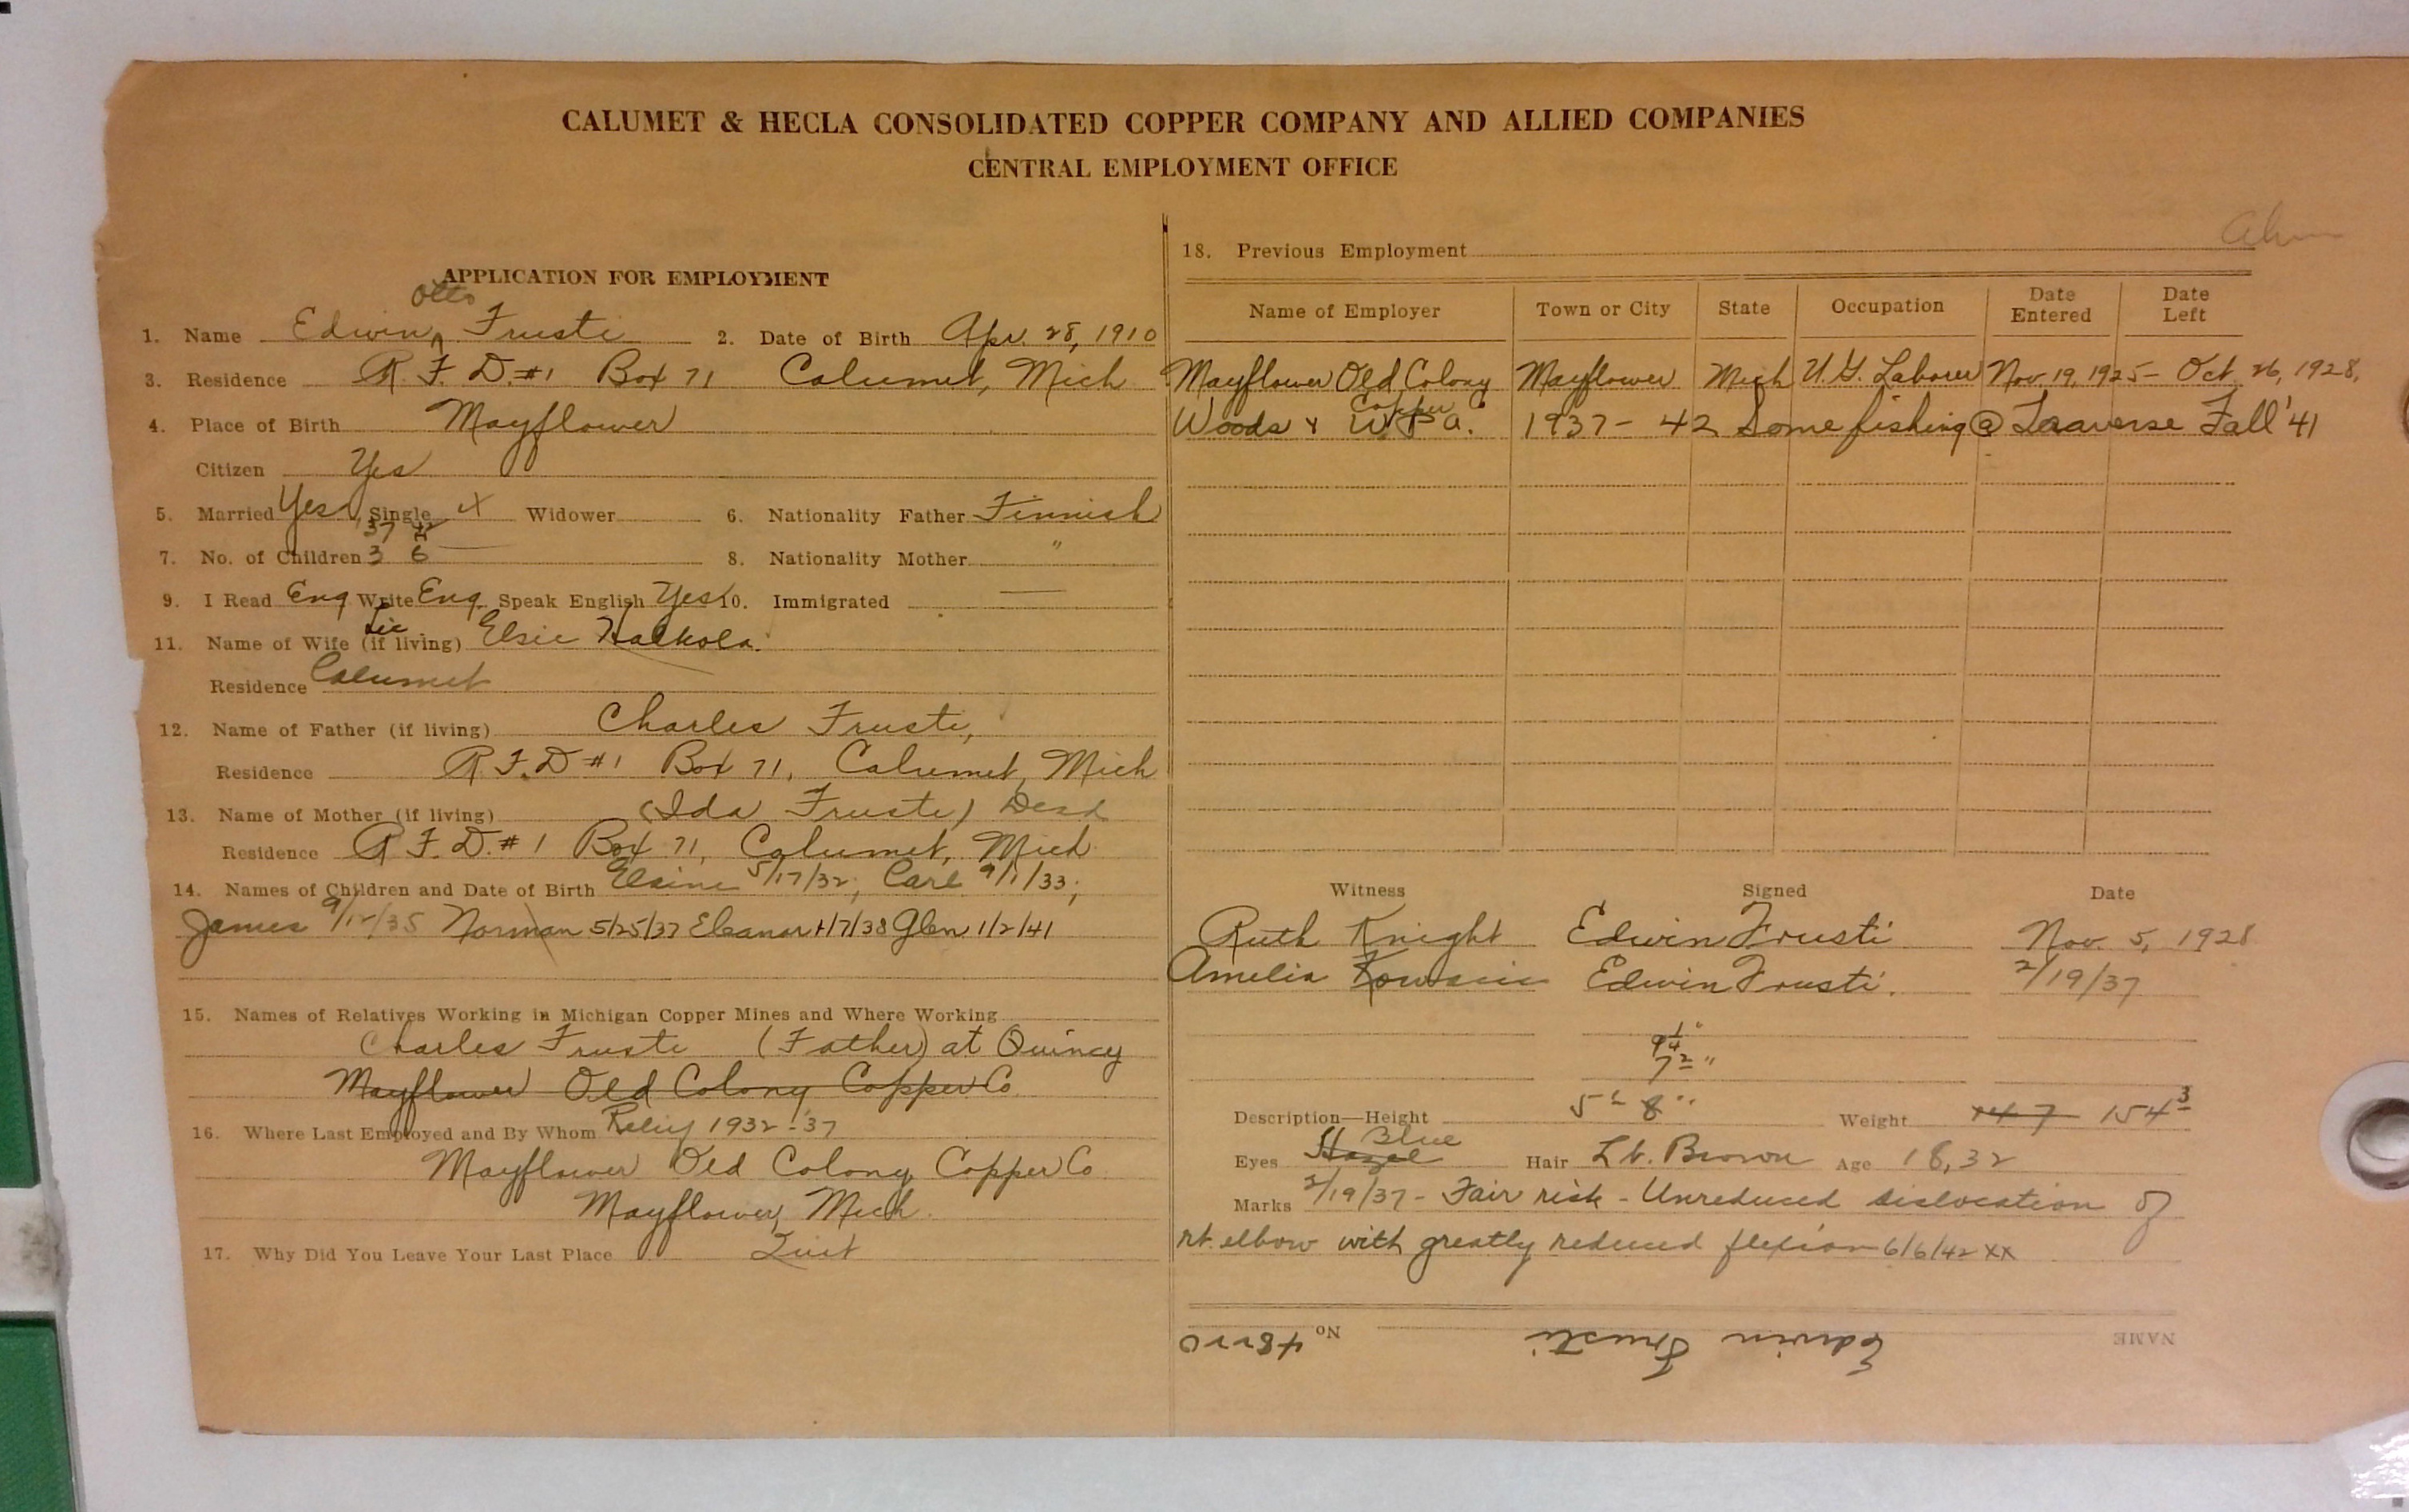 CALUMET & HECLA CONSOLIDATED COPPER COMPANY AND ALLIED COMPANIES
CENTRAL EMPLOYMENT OFFICE
APPLICATION FOR EMPLOYMENT
Otto
1. Name Edwin Frusti 2. Date of Birth Apr. 28, 1910
3. Residence R. F. D. #1 Box 71 Calumet, Mich
4. Place of Birth Mayflower
Citizen Yes
5. Married Yes Single x Widower 6. Nationality Father Finnish
37 42
7. No. of Children 3 6 8. Nationality Mother "
9. I Read Eng Write Eng. Speak English Yes 10. Immigrated —
11. Name of Wife (if living) Elsie
Residence Calumet
12. Name of Father (if living) Charles Frusti,
Residence R.F.D #1 Box 71, Calumet, Mich
13. Name of Mother (if living) (Ida Frusti) Dead
Residence R. F. D. #1 Box 71, Calumet, Mich
14. Names of Children and Date of Birth Elaine 5/17/32, Carl 9/1/33;
James 9/12/35 Norman 5/25/37 Eleanor 1/7/38 Glen 1/2/41
15. Names of Relatives Working in Michigan Copper Mines and Where Working
Charles Frusti (Father) at Quincy
Mayflower Old Colony Copper Co
16. Where Last Employed and By Whom Relief 1932-37
Mayflower Old Colony Copper Co
Mayflower, Mich.
17. Why Did You Leave Your Last Place Quit
18. Previous Employment
Name of Employer Town or City State Occupation Date Entered Date Left
Mayflower Old Colony Mayflower Mich U.G. Laborer Nov. 19, 1925 - Oct. 26, 1928,
Copper
Woods & W.P.a. 1937 - 42 Some fishing @ Traverse Fall '41
Witness Signed Date
Ruth Knight Edwin Frusti Nov. 5, 1928
Amelia Edwin Frusti. 2/19/37
Description—Height 5' 8" Weight 147 154 3
7 2"
Blue
Eyes Hazel Hair Lt. Brown Age 18, 32
Marks 2/19/37 - Fair risk - Unreduced dislocation of
rt. elbow with greatly reduced flexion 6/6/42 XX
NAME Edwin Frusti No